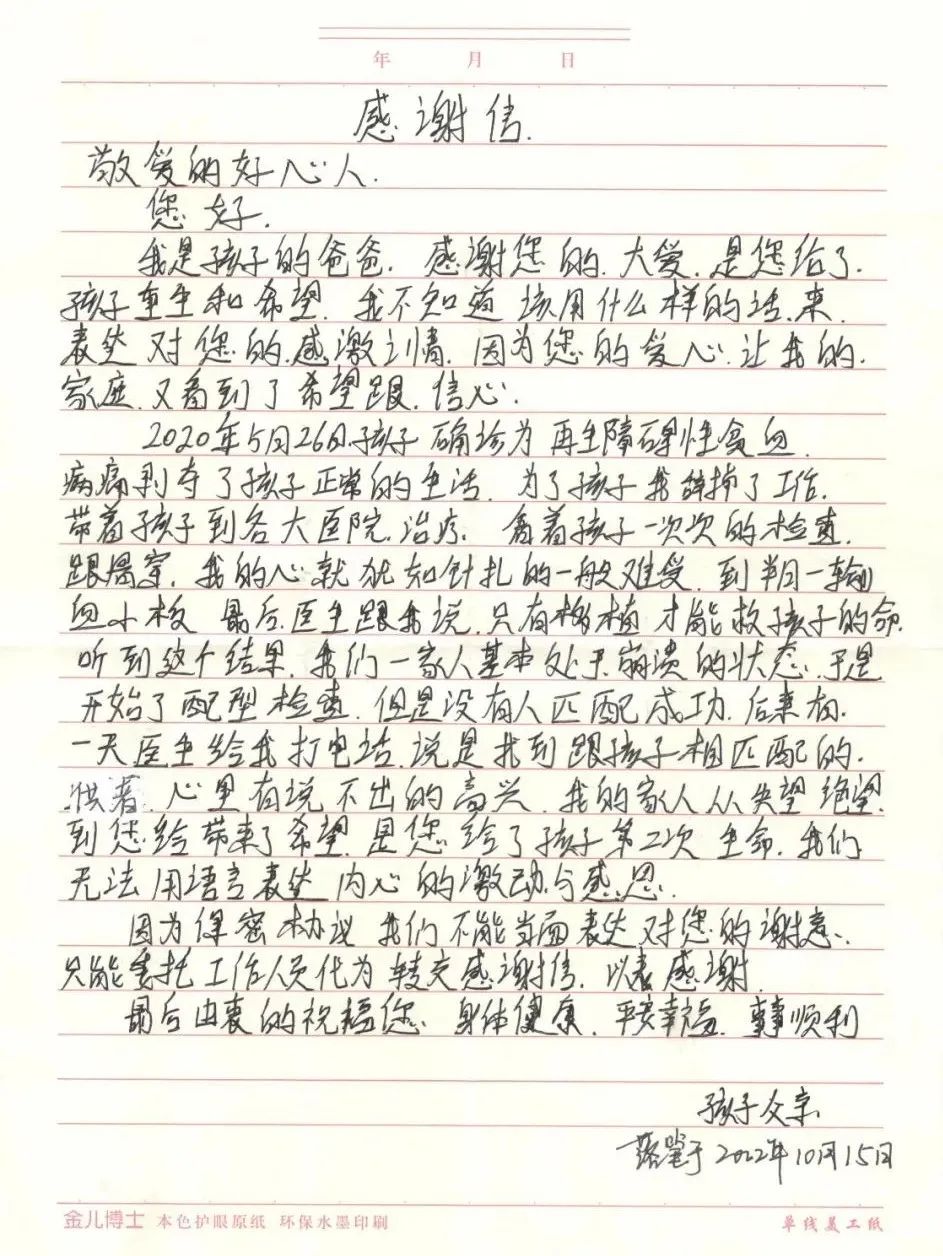 年 月 日
感谢信.
敬爱的好心人.
您好.
我是孩子的爸爸. 感谢您的.大爱.是您给了.
孩子重生和希望.我不知道该用什么样的话.来.
表达对您的.感激之情.因为您的爱心.让我的.
家庭.又看到了希望跟.信心.
2020年5月26日.孩子确诊为再生障碍性贫血.
病痛剥夺了孩子正常的生活.为了孩子我辞掉了工作.
带着孩子到各大医院.治疗. 看着孩子一次次的检查.
跟.我的心就犹如针扎的一般难受.到半月一输
血小板 最后.医生跟我说.只有移植才能救孩子的命.
听到这个结果.我们一家人基本处于崩溃的状态.于是
开始了配型检查.但是没有人匹配成功.后来有.
一天医生给我打电话.说是找到跟孩子相匹配的.
供者.心里有说不出的高兴.我的家人从失望绝望.
到您给带来了希望.是您给了孩子第二次生命.我们
无法用语言表达内心的激动与感恩.
因为保密协议我们不能当面表达对您的谢意.
只能委托工作人员化为转交感谢信.以表感谢.
最后由衷的祝福您.身体健康.平安幸福.事事顺利
孩子父亲
落笔于2022年10月15日
金儿博士 本色护眼原纸 环保水墨印刷 单线美工纸